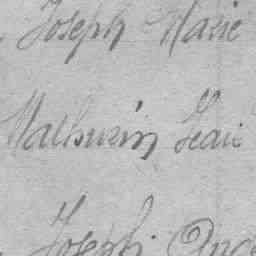 Joseph Marie
Mathurin Jean
Joseph